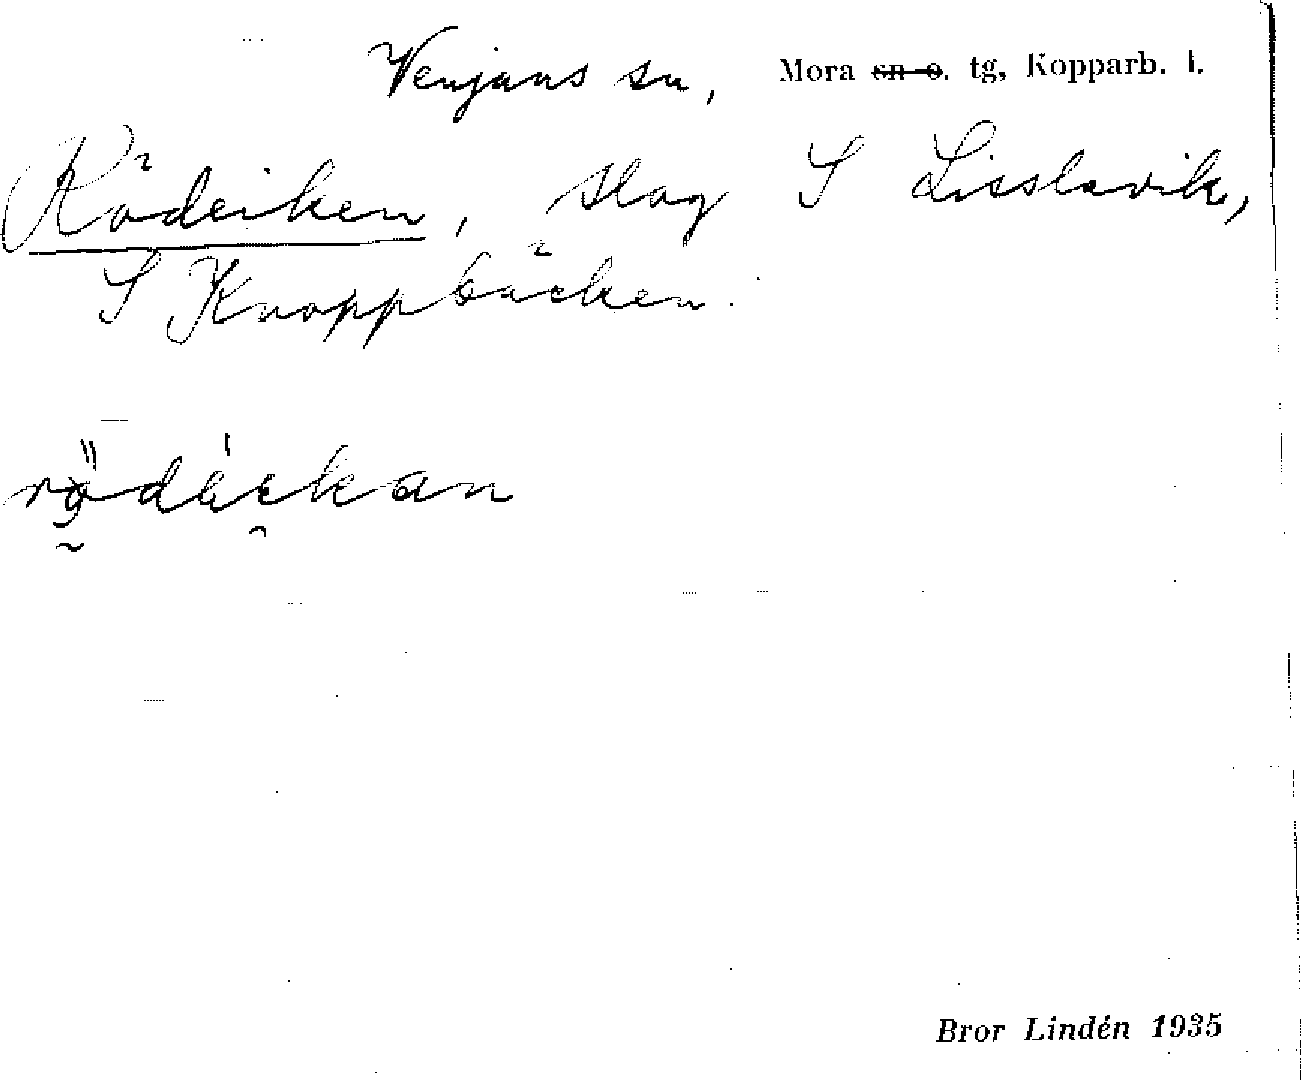 Venjans sn, Mora sn o. tg, Kopparb. l.
Rödeiken, slog S Lisslavik,
S Knoppbäcken.
rödäckan
Bror Lindén 1935